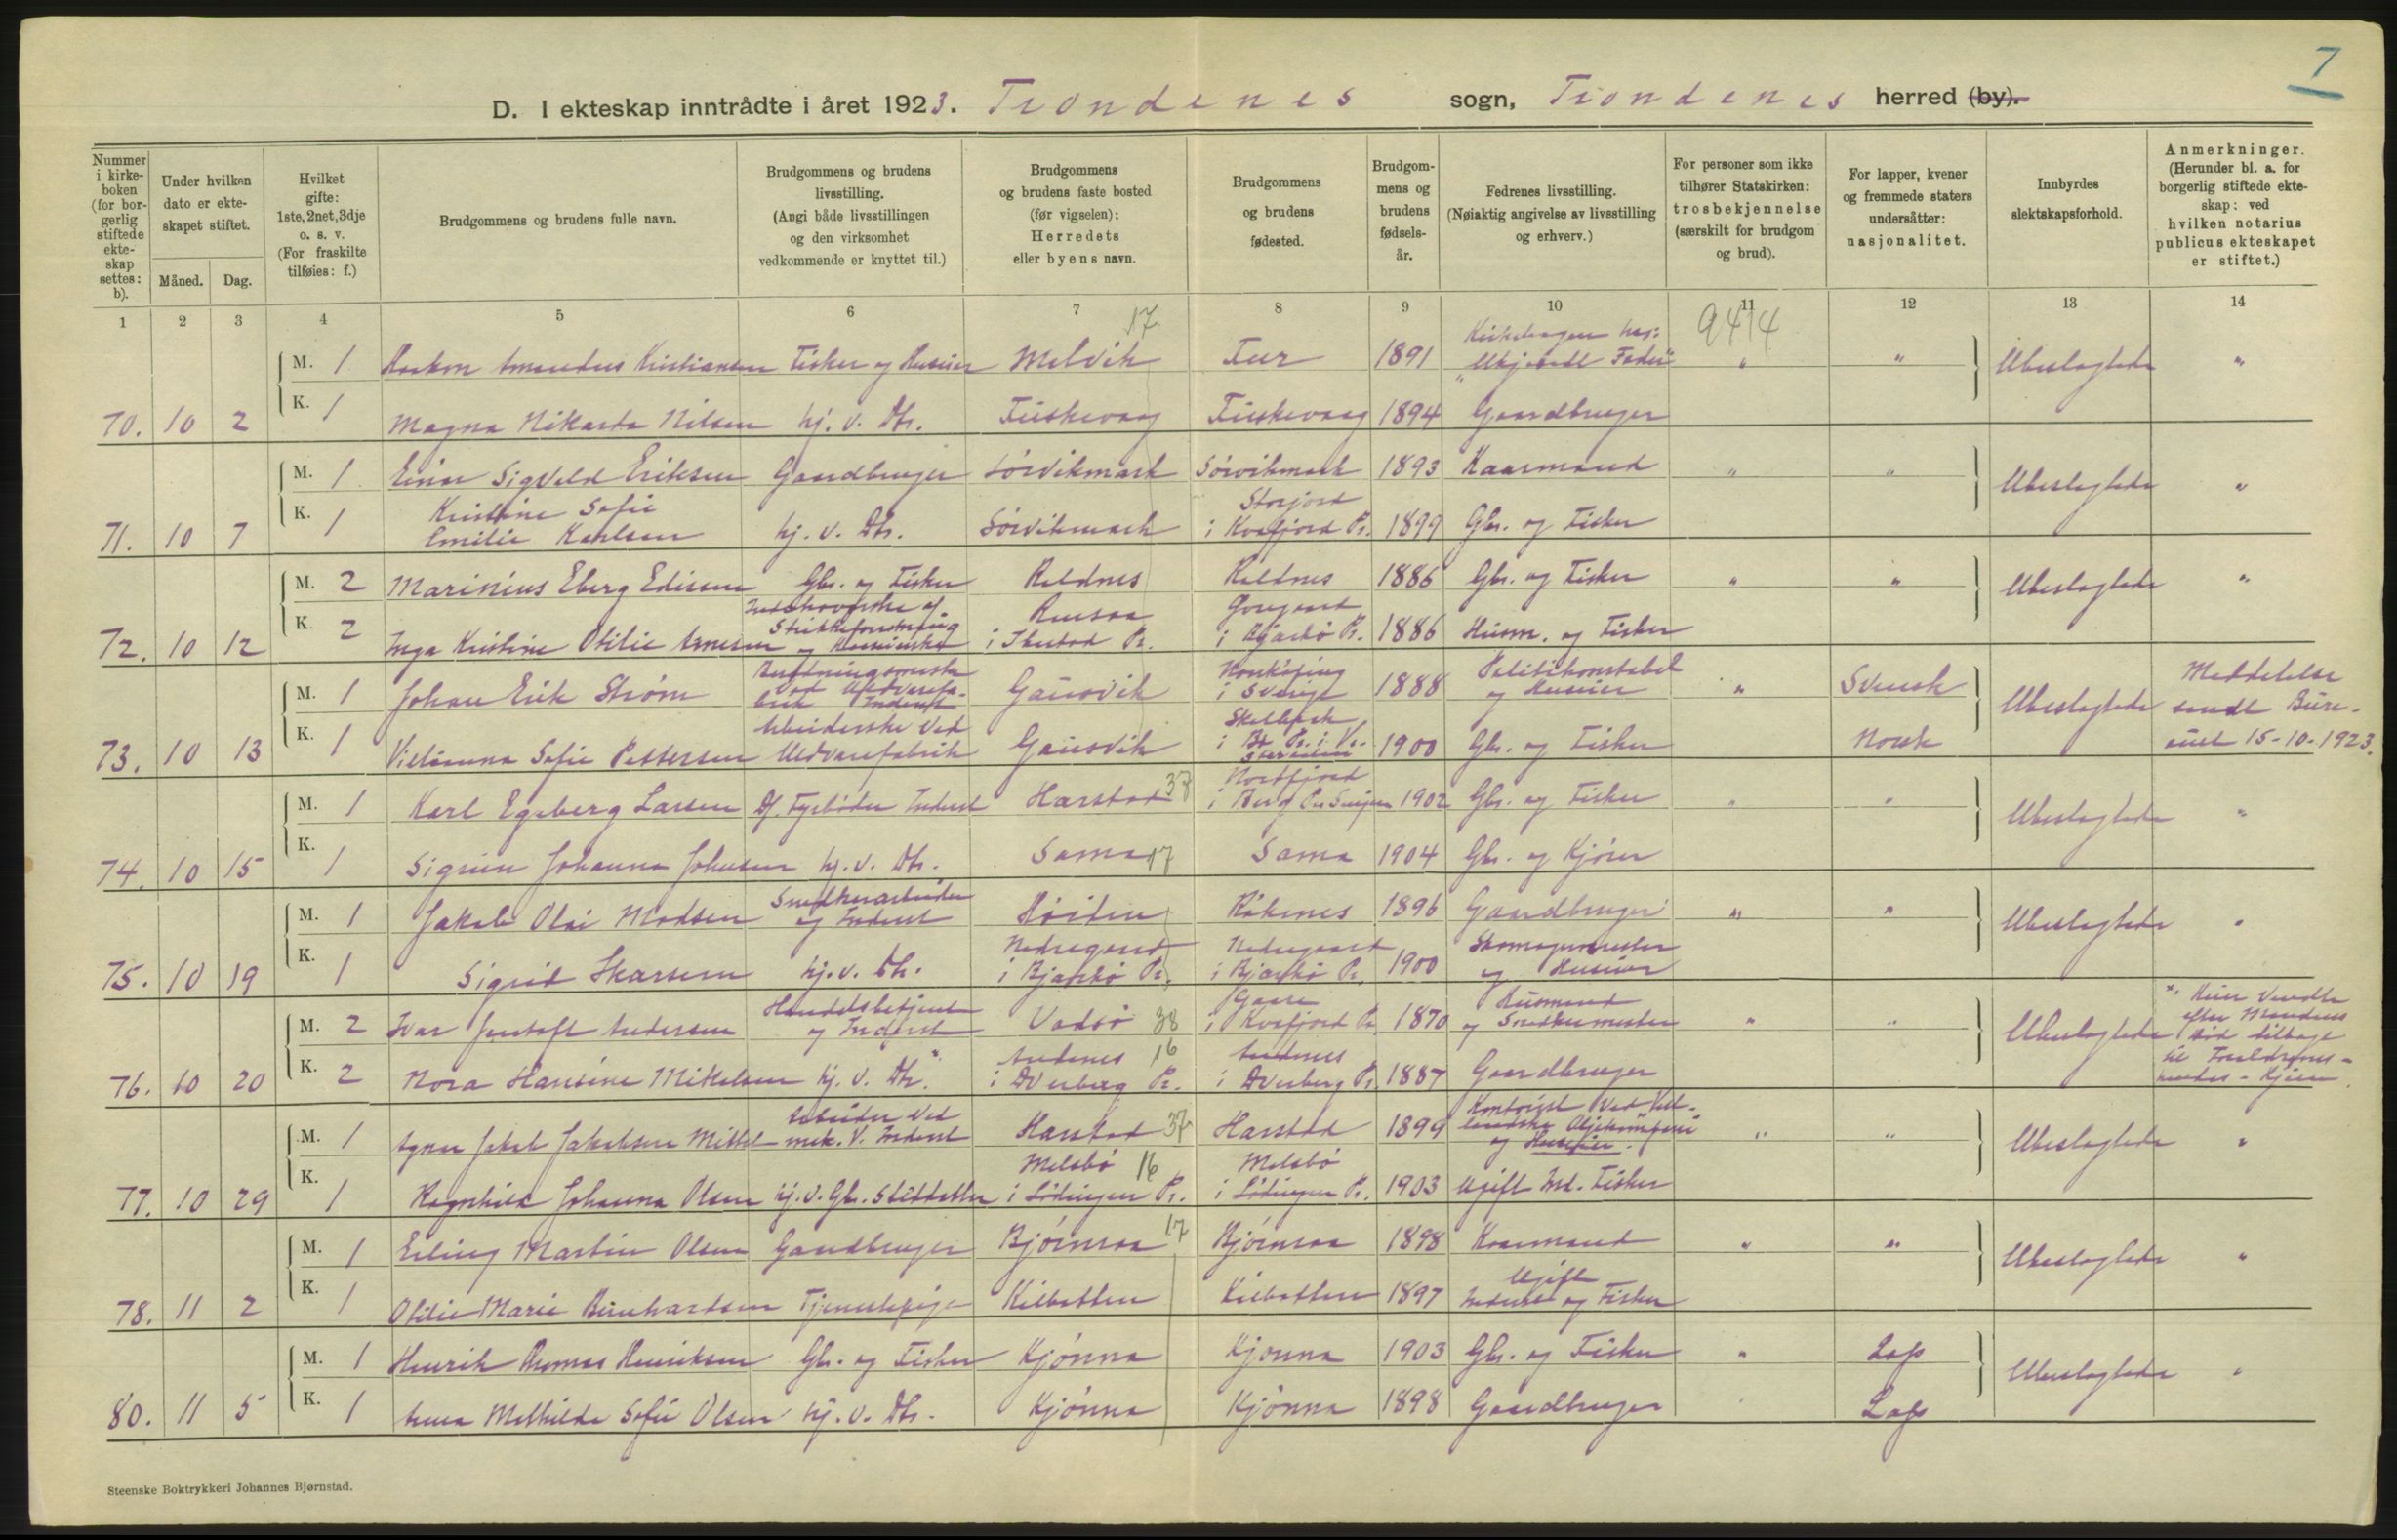 7
D. I ekteskap inntrådte i året 1923. Trondenes sogn, Trondenes herred (by).
Nummer i kirkeboken (for borgerlig stiftede ekteskap settes: b).
Under hvilken dato er ekteskapet stiftet.
Måned.
Dag.
Hvilket gifte: 1ste, 2net, 3dje o. s. v. (For fraskilte tilføies: f.)
Brudgommens og brudens fulle navn.
Brudgommens og brudens livsstilling. (Angi både livsstillingen og den virksomhet vedkommende er knyttet til.)
Brudgommens og brudens faste bosted (før vigselen): Herredets eller byens navn.
Brudgommens og brudens fødested.
Brudgommens og brudens fødselsår.
Fedrenes livsstilling. (Nøiaktig angivelse av livsstilling og erhverv.)
For personer som ikke tilhører Statskirken: trosbekjennelse (særskilt for brudgom og brud).
For lapper, kvener og fremmede staters undersåtter: nasjonalitet.
Innbyrdes slektskapsforhold.
Anmerkninger. (Herunder bl. a. for borgerlig stiftede ekteskap: ved hvilken notarius publicus ekteskapet er stiftet.)
1 2 3 4 5 6 7 8 9 10 11 12 13 14
17 9414
M. 1 Haakon Amandus Kristiansen Fisker og Huseier Melvik 1891 " " Ubeslegtede "
70. 10 2 K. 1 Magna Nikarda Nilsen hj. v. Dtr. Fuskevaag Fuskevaag 1894 Gaardbruger
M. 1 Einar Sigvald Eriksen Gaardbruger Sörvikmark Sörvikmark 1893 Kaarmand " " Ubeslegtede "
Kristine Sofie Storjord
71. 10 7 K. 1 Emilie Karlsen hj. v. Dtr. Sörvikmark i Kvæfjord Pr. 1899 Gbr. og Fisker
M. 2 Marinius Eberg Edissen Gbr. og Fisker Roldnes Roldnes 1886 Gbr. og Fisker " " Ubeslegtede "
72. 10 12 K. 2 Inga Kristine Otilie Arnesen i Ibestad Pr. i Bjarkö Pr. 1886 Husm. og Fisker
M. 1 Johan Erik Strøm Gausvik Norrköping i Sverige 1888 Politikonstabel og Huseier " Svensk Ubeslegtede Meddelelse sendt Büre-
73. 10 13 K. 1 Sofie Pettersen Arbeiderske ved Uldvarefabrik Gausvik 1900 Gbr. og Fisker Norsk 15-10-1923.
M. 1 Karl Egeberg Larsen Df. Fyrböder Inderst Harstad 37 Nordfjord i Berg Pr. Senjen 1902 Gbr. og Fisker " " Ubeslegtede "
74. 10 15 K. 1 Sigrun Johanna Johnsen hj. v. Dtr. Sama 17 Sama 1904 Gbr. og Kjører
M. 1 Jakob Olai Madsen Snedkerarbeider og Inderst Röknes 1896 Gaardbruger " " Ubeslegtede "
75. 10 19 K. 1 Sigrid Skarsem hj. v. Dtr. Nedregaard i Bjarkö Pr. Nedregaard i Bjarkö Pr. 1900 Skomagermester og Husier
M. 2 Ivar Jentoft Andersen Handelsbetjent og Inderst Vadsö 38 i Kvæfjord Pr. 1870 Husmand og Snedkermester " " Ubeslegtede
76. 10 20 K. 2 Nora Hansine Mikalsen hj. v. Dtr. Andenes 16 i Dverberg Pr. Andenes i Dverberg Pr. 1887 Gaardbruger
M. 1 Agnar Jakob Jakobsen Arbeider ved mek. V. Inderst Harstad 37 Harstad 1899 Kontorist ved og Husier. " " Ubeslegtede "
77. 10 29 K. 1 Ragnhild Johanna Olsen Melsbö 16 i Lödingen Pr. Melsbö i Lödingen Pr. 1903 Ugift Ind. Fisker
M. 1 Erling Martin Olsen Gaardbruger Björnraa 17 Björnraa 1898 Kaarmand " " Ubeslegtede "
78. 11 2 K. 1 Otilie Marie Bernhardsen Tjenestepige Kilbotten Kilbotten 1897 Ugift Inderst og Fisker
M. 1 Henrik Thomas Henriksen Gbr. og Fisker Kjönna Kjönna 1903 Gbr. og Fisker " Lap Ubeslegtede "
80. 11 5 K. 1 Anna Mathilde Sofie Olsen hj. v. Dtr. Kjönna Kjönna 1898 Gaardbruger Lap
Steenske Boktrykkeri Johannes Bjørnstad.